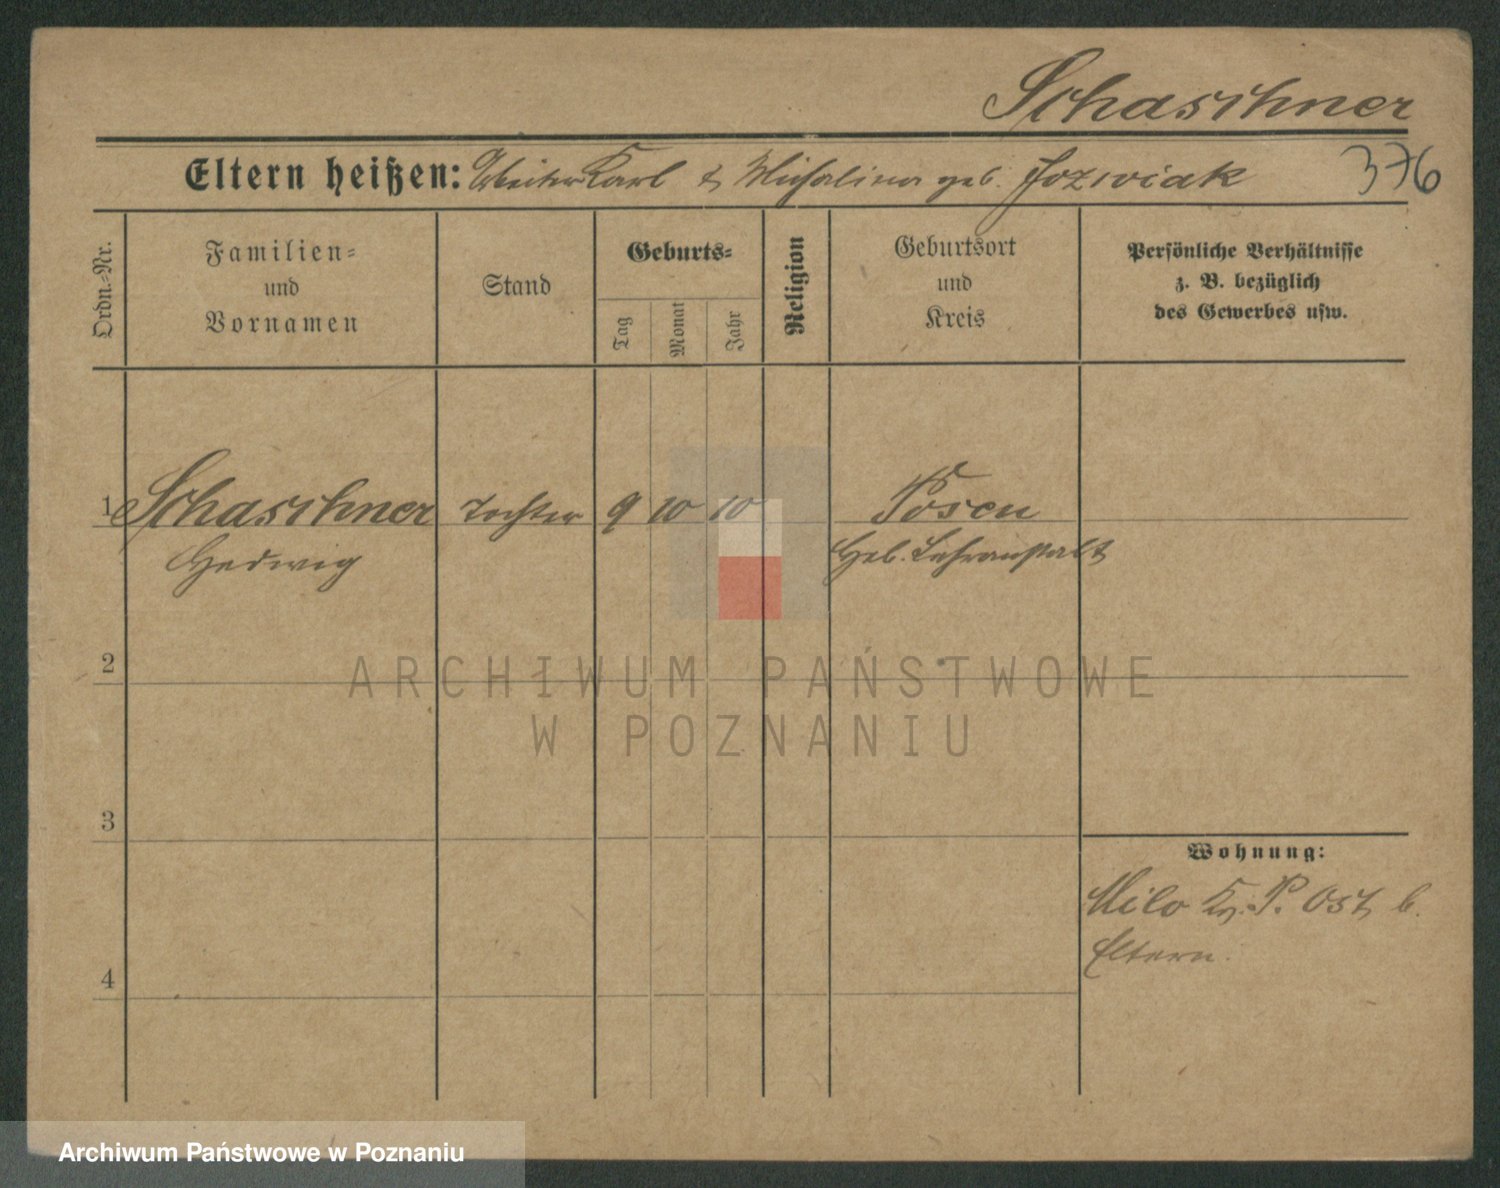 Schaschner
Eltern heißen: Arbeiter Karl & Michalina geb. Jozwiak 376
Ordn.-Nr.
Familien-
und
Vornamen
Stand
Geburts-
Tag
Monat
Jahr
Religion
Geburtsort
und
Kreis
Persönliche Verhältnisse
z. B. bezüglich
des Gewerbes usw.
1 Schaschner Tochter 9 10 10 Posen
Hedwig Heb. Lehranstalt
2
ARCHIWUM PAŃSTWOWE
W POZNANIU
3
Wohnung:
Milo Kr. P. Ost, b.
Eltern.
4
Archiwum Państwowe w Poznaniu